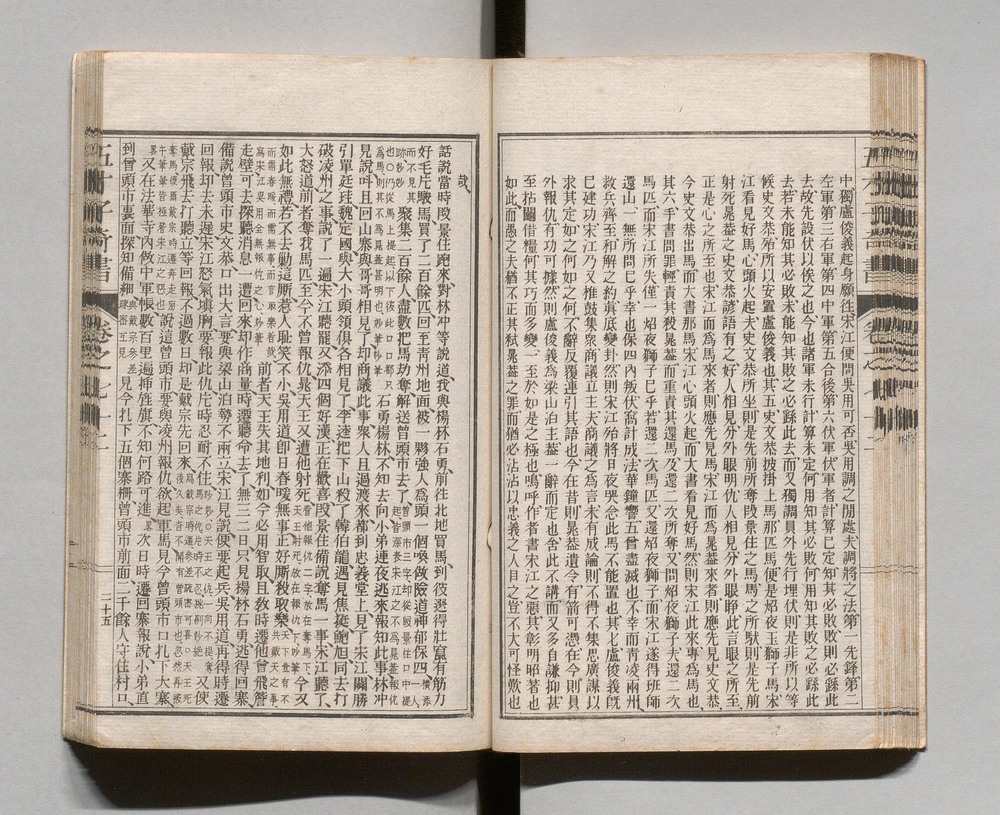 中獨盧俊義起身願往宋江便問吳用可否吳用調之閒處夫調將之法第一先鋒第二
左軍第三右軍第四中軍第五合後第六伏軍伏軍者計算已定知其必敗敗則必繇此
去故先設伏以俟之也今也諸軍未行計算未定何用知其必敗何用知其敗之必繇此
去若未能知其必敗未能知其敗之必繇此去而又獨調員外先行埋伏則是非所以等
候史文恭殆所以安置盧俊義也其五史文恭披掛上馬那匹馬便是炤夜玉獅子馬宋
江看見好馬心頭火起夫史文恭所坐則是先前所奪段景住之馬馬之所馱則是先前
射死晁葢之史文恭諺語有之好人相見分外眼明仇人相見分外眼睜此言眼之所至
正是心之所至也宋江而爲馬來者則應先見馬宋江而爲晁葢來者則應先見史文恭
今史文恭出馬而大書那馬宋江心頭火起而大書看見好馬然則宋江此來專爲馬也
其六手書問罪輕責其殺晁葢而重責其還馬及還二次所奪又問炤夜獅子夫還二次
馬匹而宋江所失僅一炤夜獅子已乎若還二次馬匹又還炤夜獅子而宋江遂得班師
還山一無所問已乎幸也保四內叛伏窩計成法華鐘響五曾盡滅也不幸而靑凌兩州
救兵齊至和解之約眞成然則宋江殆將日夜哭念此馬不能置也其七盧俊義旣
已建功宋江乃又椎鼓集衆商議立主夫商議之爲言未有成論則不得不集思廣謀以
求其定如之何如之何不辭反覆連引其語也今在昔則晁葢遺令有箭可憑在今則員
外報仇有功可據然則盧俊義爲梁山泊主葢一辭而定也舍此不講而又多自謙抑甚
至拈鬮借糧何其巧而多變一至於如是之極也嗚呼作者書宋江之惡其彰明昭著也
如此而愚之夫猶不正其弒晁葢之罪而猶必沾沾以忠義之人目之豈不大可怪歎也
哉
話說當時段景住跑來對林冲等說道我與楊林石勇前往北地買馬到彼選得壯竄有筋力
好毛片駿馬買了二百餘匹回至靑州地面被一夥強人爲頭一個喚做險道神郁保四
聚集二百餘人盡數把馬劫奪解送曾頭市去了
石勇楊林不知去向小弟連夜逃來報知此事林冲
見說叫且回山寨與哥哥相見了却商議此事衆人且過渡來都到忠義堂上見了宋江關勝
引單廷珪魏定國與大小頭領俱各相見了李逵把下山殺了韓伯龍遇見焦挺鮑旭同去打
破凌州之事說了一遍宋江聽罷又添四個好漢正在歡喜段景住備說奪馬一事宋江聽了
大怒道前者奪我馬匹至今不曾報仇晁天王又遭他射死
今又
如此無禮若不去勦這厮惹人恥笑不小吳用道即日春暖無事正好厮殺取樂
前者天王失其地利如今必用智取且敎時遷他會飛簷
走壁可去探聽消息一遭回來却作商量時遷聽命去了無三二日只見楊林石勇逃得回寨
備說曾頭市史文恭口出大言要與梁山泊勢不兩立宋江見說便要起兵吳用道再得時遷
回報却去未遲宋江怒氣塡胸要報此仇片時忍耐不住
又使
戴宗飛去打聽立等回報不過數日却是戴宗先回來
說這曾頭市要與凌州報仇欲起軍馬見今曾頭市口扎下大寨
又在法華寺內做中軍帳數百里遍揷旌旗不知何路可進次日時遷回寨報說小弟直
到曾頭市裏面探知備細見今扎下五個寨柵曾頭市前面二千餘人守住村口
二十五